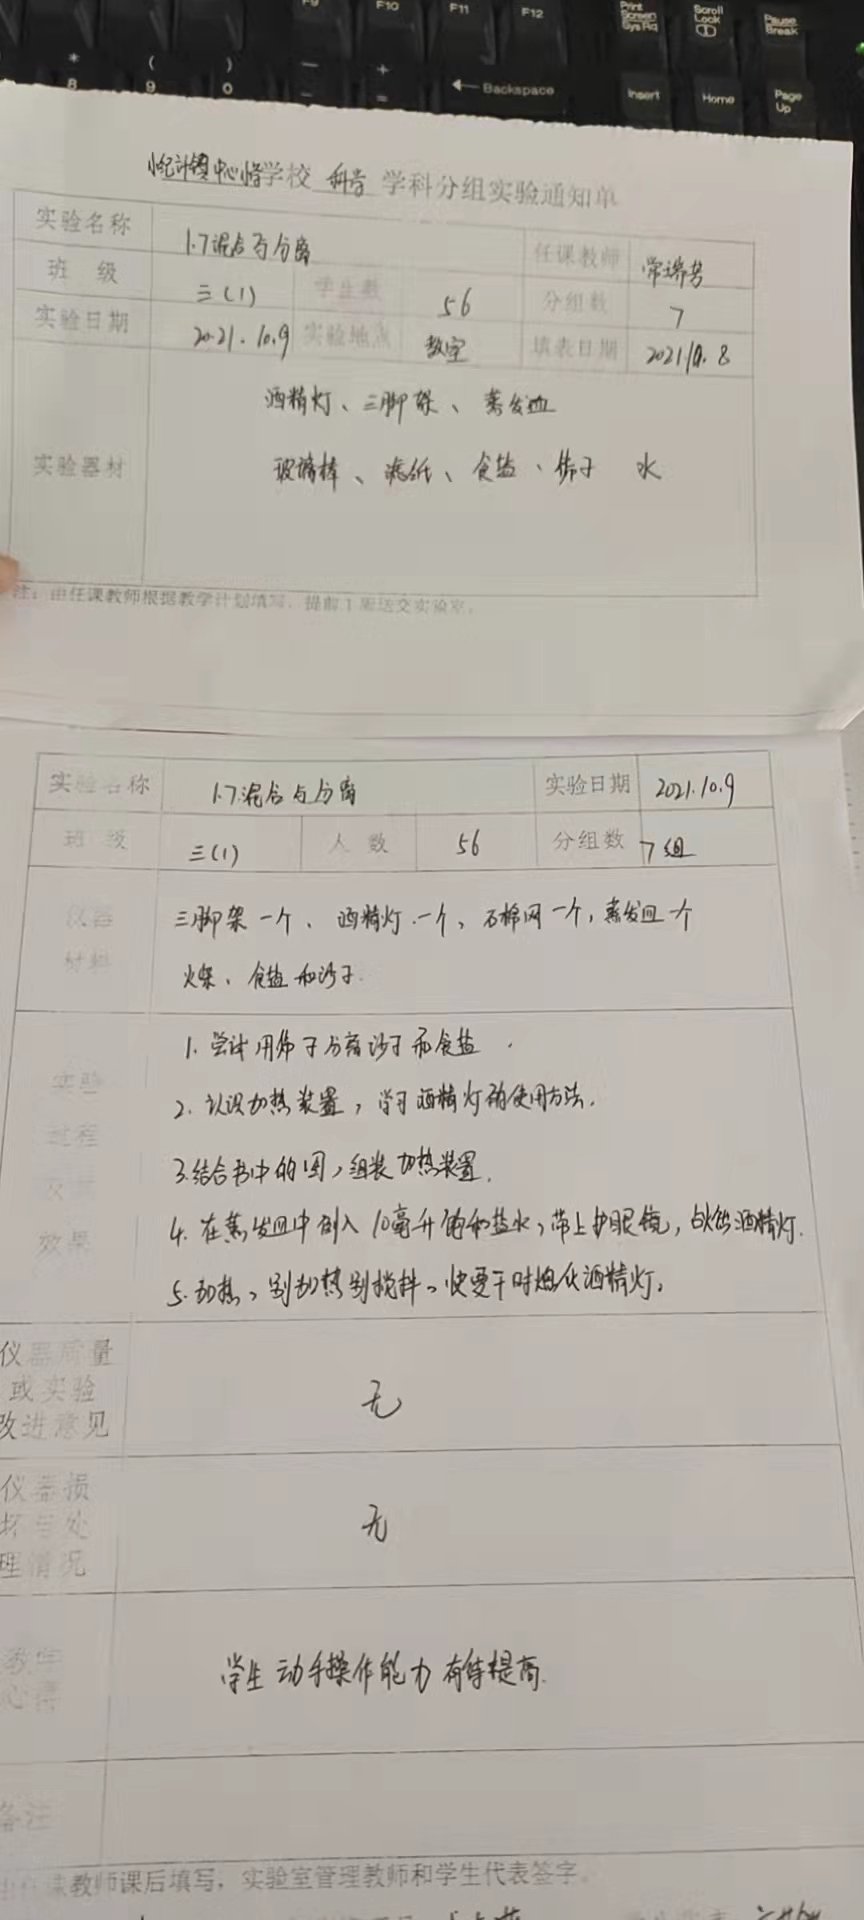 F9 F10 F11 F12 Print Screen SysRq Scroll Lock Pause Break
* 8 ( 9 ) 0 — - + = Backspace Insert Home Page Up
中心 学校 科音 学科分组实验通知单
实验名称 1.7混合与分离 任课教师
班 级 三(1) 学生数 56 分组数 7
实验日期 2021.10.9 实验地点 教室 填表日期 2021.10.8
酒精灯、三脚架、蒸发皿
实验器材 玻璃棒、滤纸、食盐、筛子 水
注：由任课教师根据教学计划填写，提前1周送交实验室。
实验名称 1.7混合与分离 实验日期 2021.10.9
班 级 三(1) 人 数 56 分组数 7组
仪器 三脚架一个、酒精灯一个，石棉网一个，蒸发皿一个
材料 火柴、食盐和沙子.
1. 尝试用筛子分离沙子和食盐.
实验 2. 认识加热装置，学习酒精灯的使用方法.
过程 3.结合书中的图，组装加热装置.
及
效果 4. 在蒸发皿中倒入10毫升饱和盐水，带上护眼镜，点燃酒精灯.
5. 加热，别加热别搅拌。快要干时熄灭酒精灯。
仪器质量
或实验 无
改进意见
仪器损
坏与处 无
理情况
教师 学生动手操作能力有待提高.
心得
备注
由任课教师课后填写，实验室管理教师和学生代表签字。